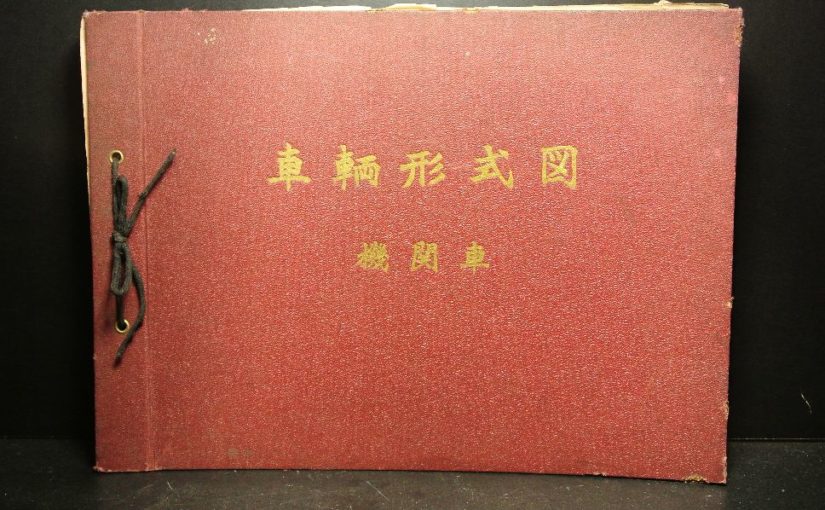 車輌形式図
機関車